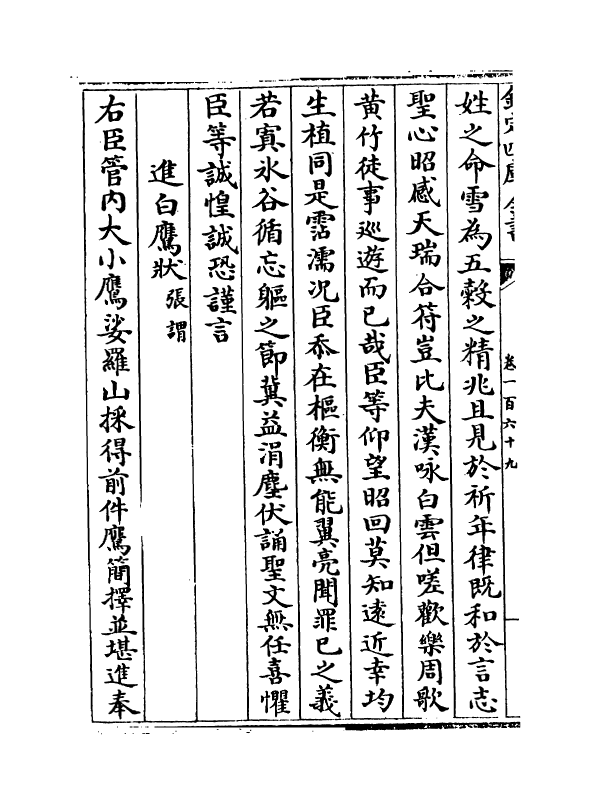 欽定四庫全書
卷一百六十九
姓之命雪為五穀之精兆且見於祈年律既和於言志
聖心昭感天瑞合符豈比夫漢咏白雲但嗟歡樂周歌
黄竹徒事巡遊而已哉臣等仰望昭回莫知遠近幸均
生植同是霑濡况臣忝在樞衡無能翼亮聞罪已之義
若寘氷谷循忘軀之節冀益涓塵伏誦聖文無任喜懼
臣等誠惶誠恐謹言
進白鷹狀張謂
右臣管内大小鷹娑羅山採得前件鷹簡擇並堪進奉